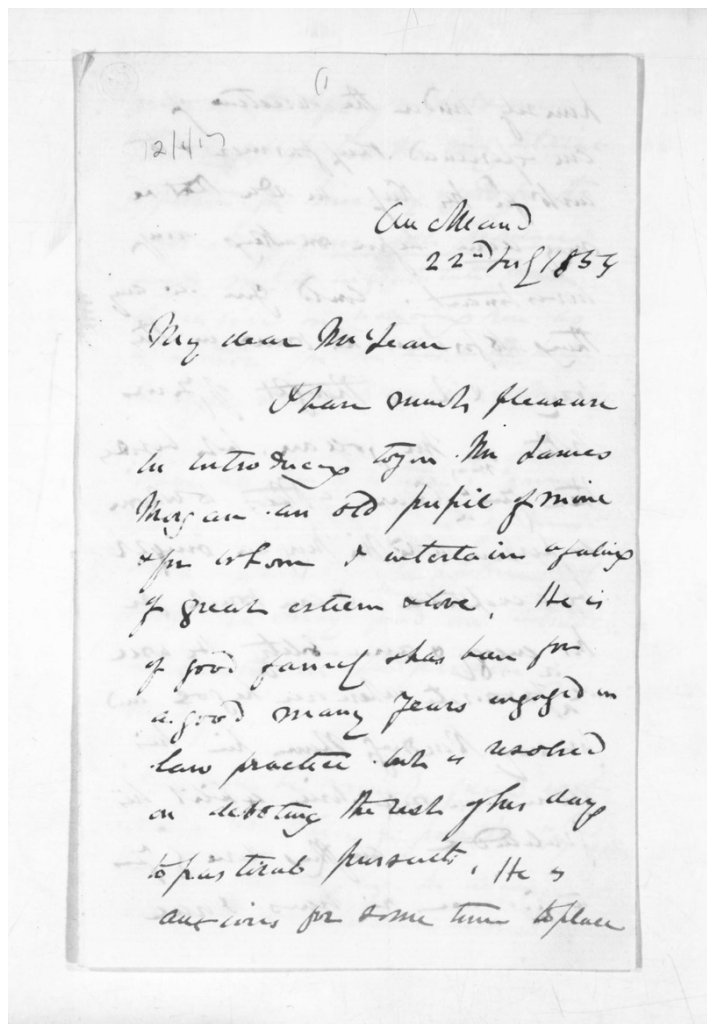 (1
12/417
Auckland
22nd July 1854
My dear McLean
I have much pleasure
in introducing to you Mr James
Morgan an old pupil of mine
& for whom I entertain a feeling
of great esteem & love. He is
of good family & has been for
a good many years engaged in
law practice but is resolved
on devoting the rest of his days
to pastoral pursuits. He is
anxious for some time to place